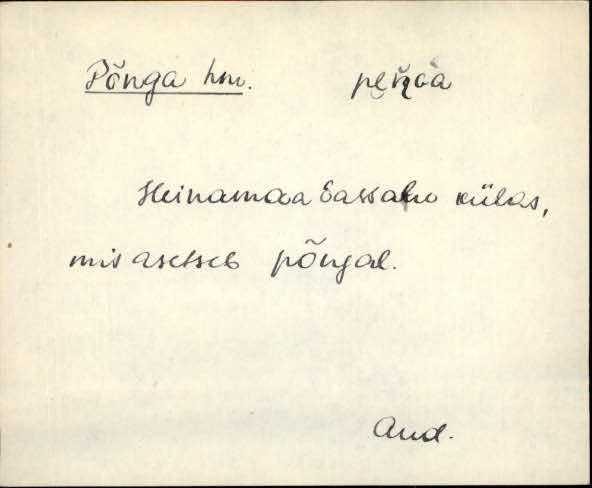 Põnga hm.
Heinamaa Eassalu külas,
mis asetseb põngal.
Aud.